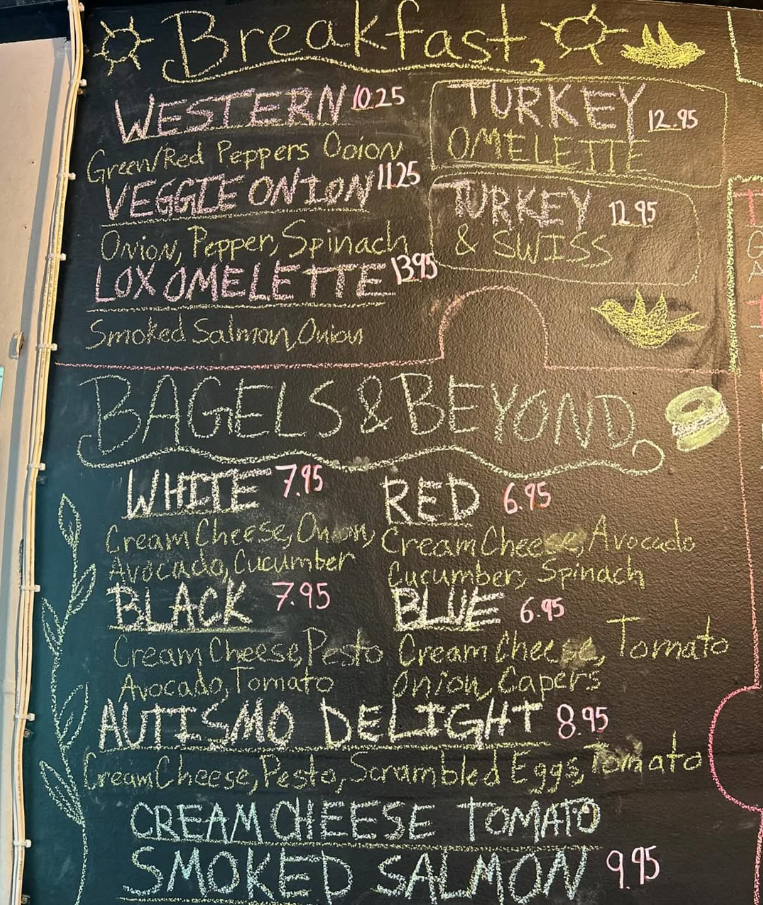 Breakfast
WESTERN 10.25
Green/Red Peppers Onion
VEGGIE ONION 11.25
Onion, Pepper, Spinach
LOX OMELETTE 13.95
Smoked Salmon, Onion
TURKEY 12.95
OMELETTE
TURKEY 12.95
& SWISS
BAGELS & BEYOND
WHITE 7.95
Cream Cheese, Onion,
Avocado, Cucumber
RED 6.95
Cream Cheese, Avocado
Cucumber, Spinach
BLACK 7.95
Cream Cheese, Pesto
Avocado, Tomato
BLUE 6.95
Cream Cheese, Tomato
Onion, Capers
AUTISMO DELIGHT 8.95
Cream Cheese, Pesto, Scrambled Eggs, Tomato
CREAM CHEESE TOMATO
SMOKED SALMON 9.95